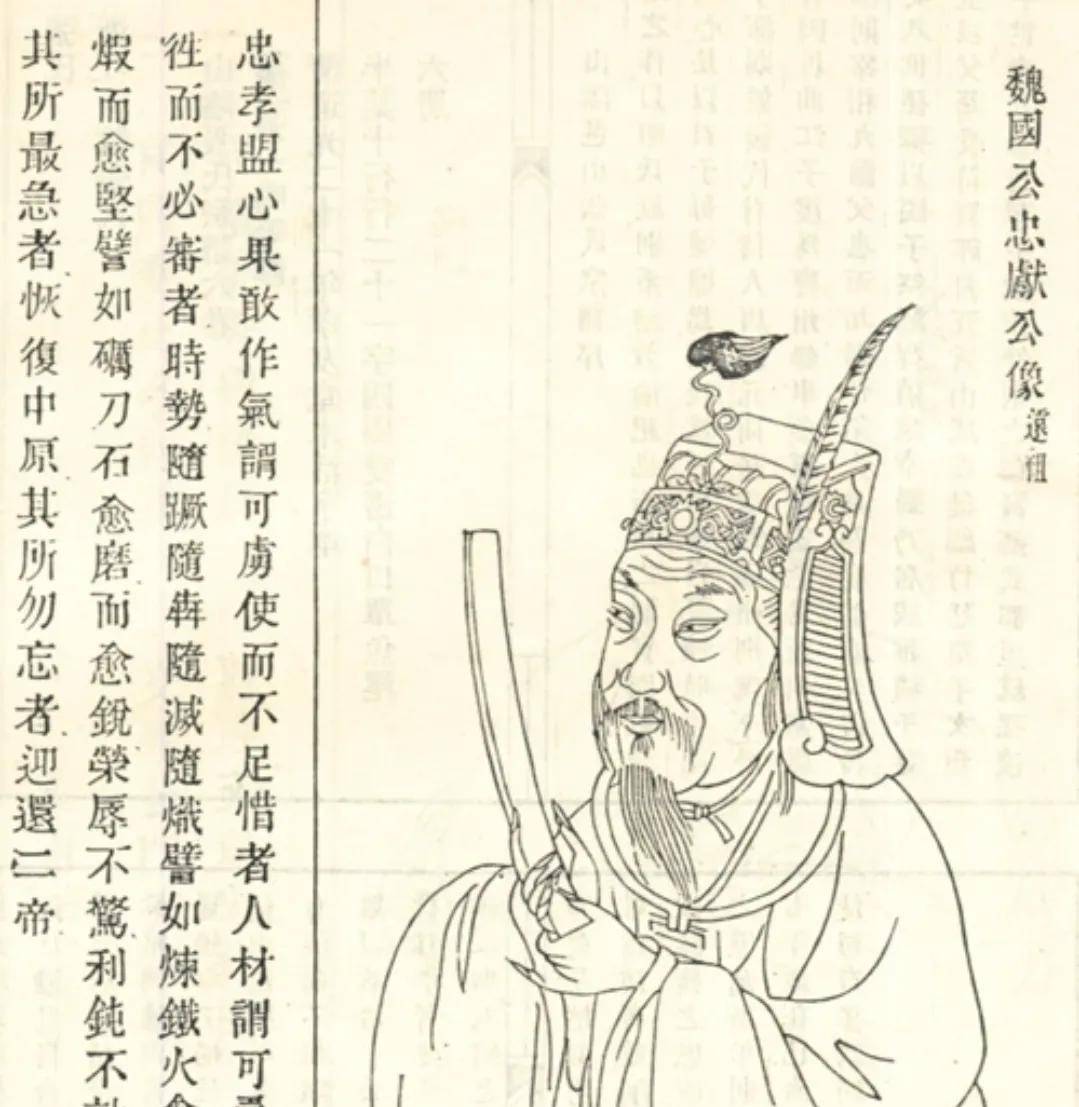 魏國公忠獻公像 遠祖
忠孝盟心果敢作氣謂可虜使而不足惜者人材謂可
徃而不必審者時勢隨蹶隨犇隨滅隨熾譬如煉鐵火
煆而愈堅譬如礪刀石愈磨而愈銳榮辱不驚利鈍不
其所最急者恢復中原其所勿忘者迎還二帝